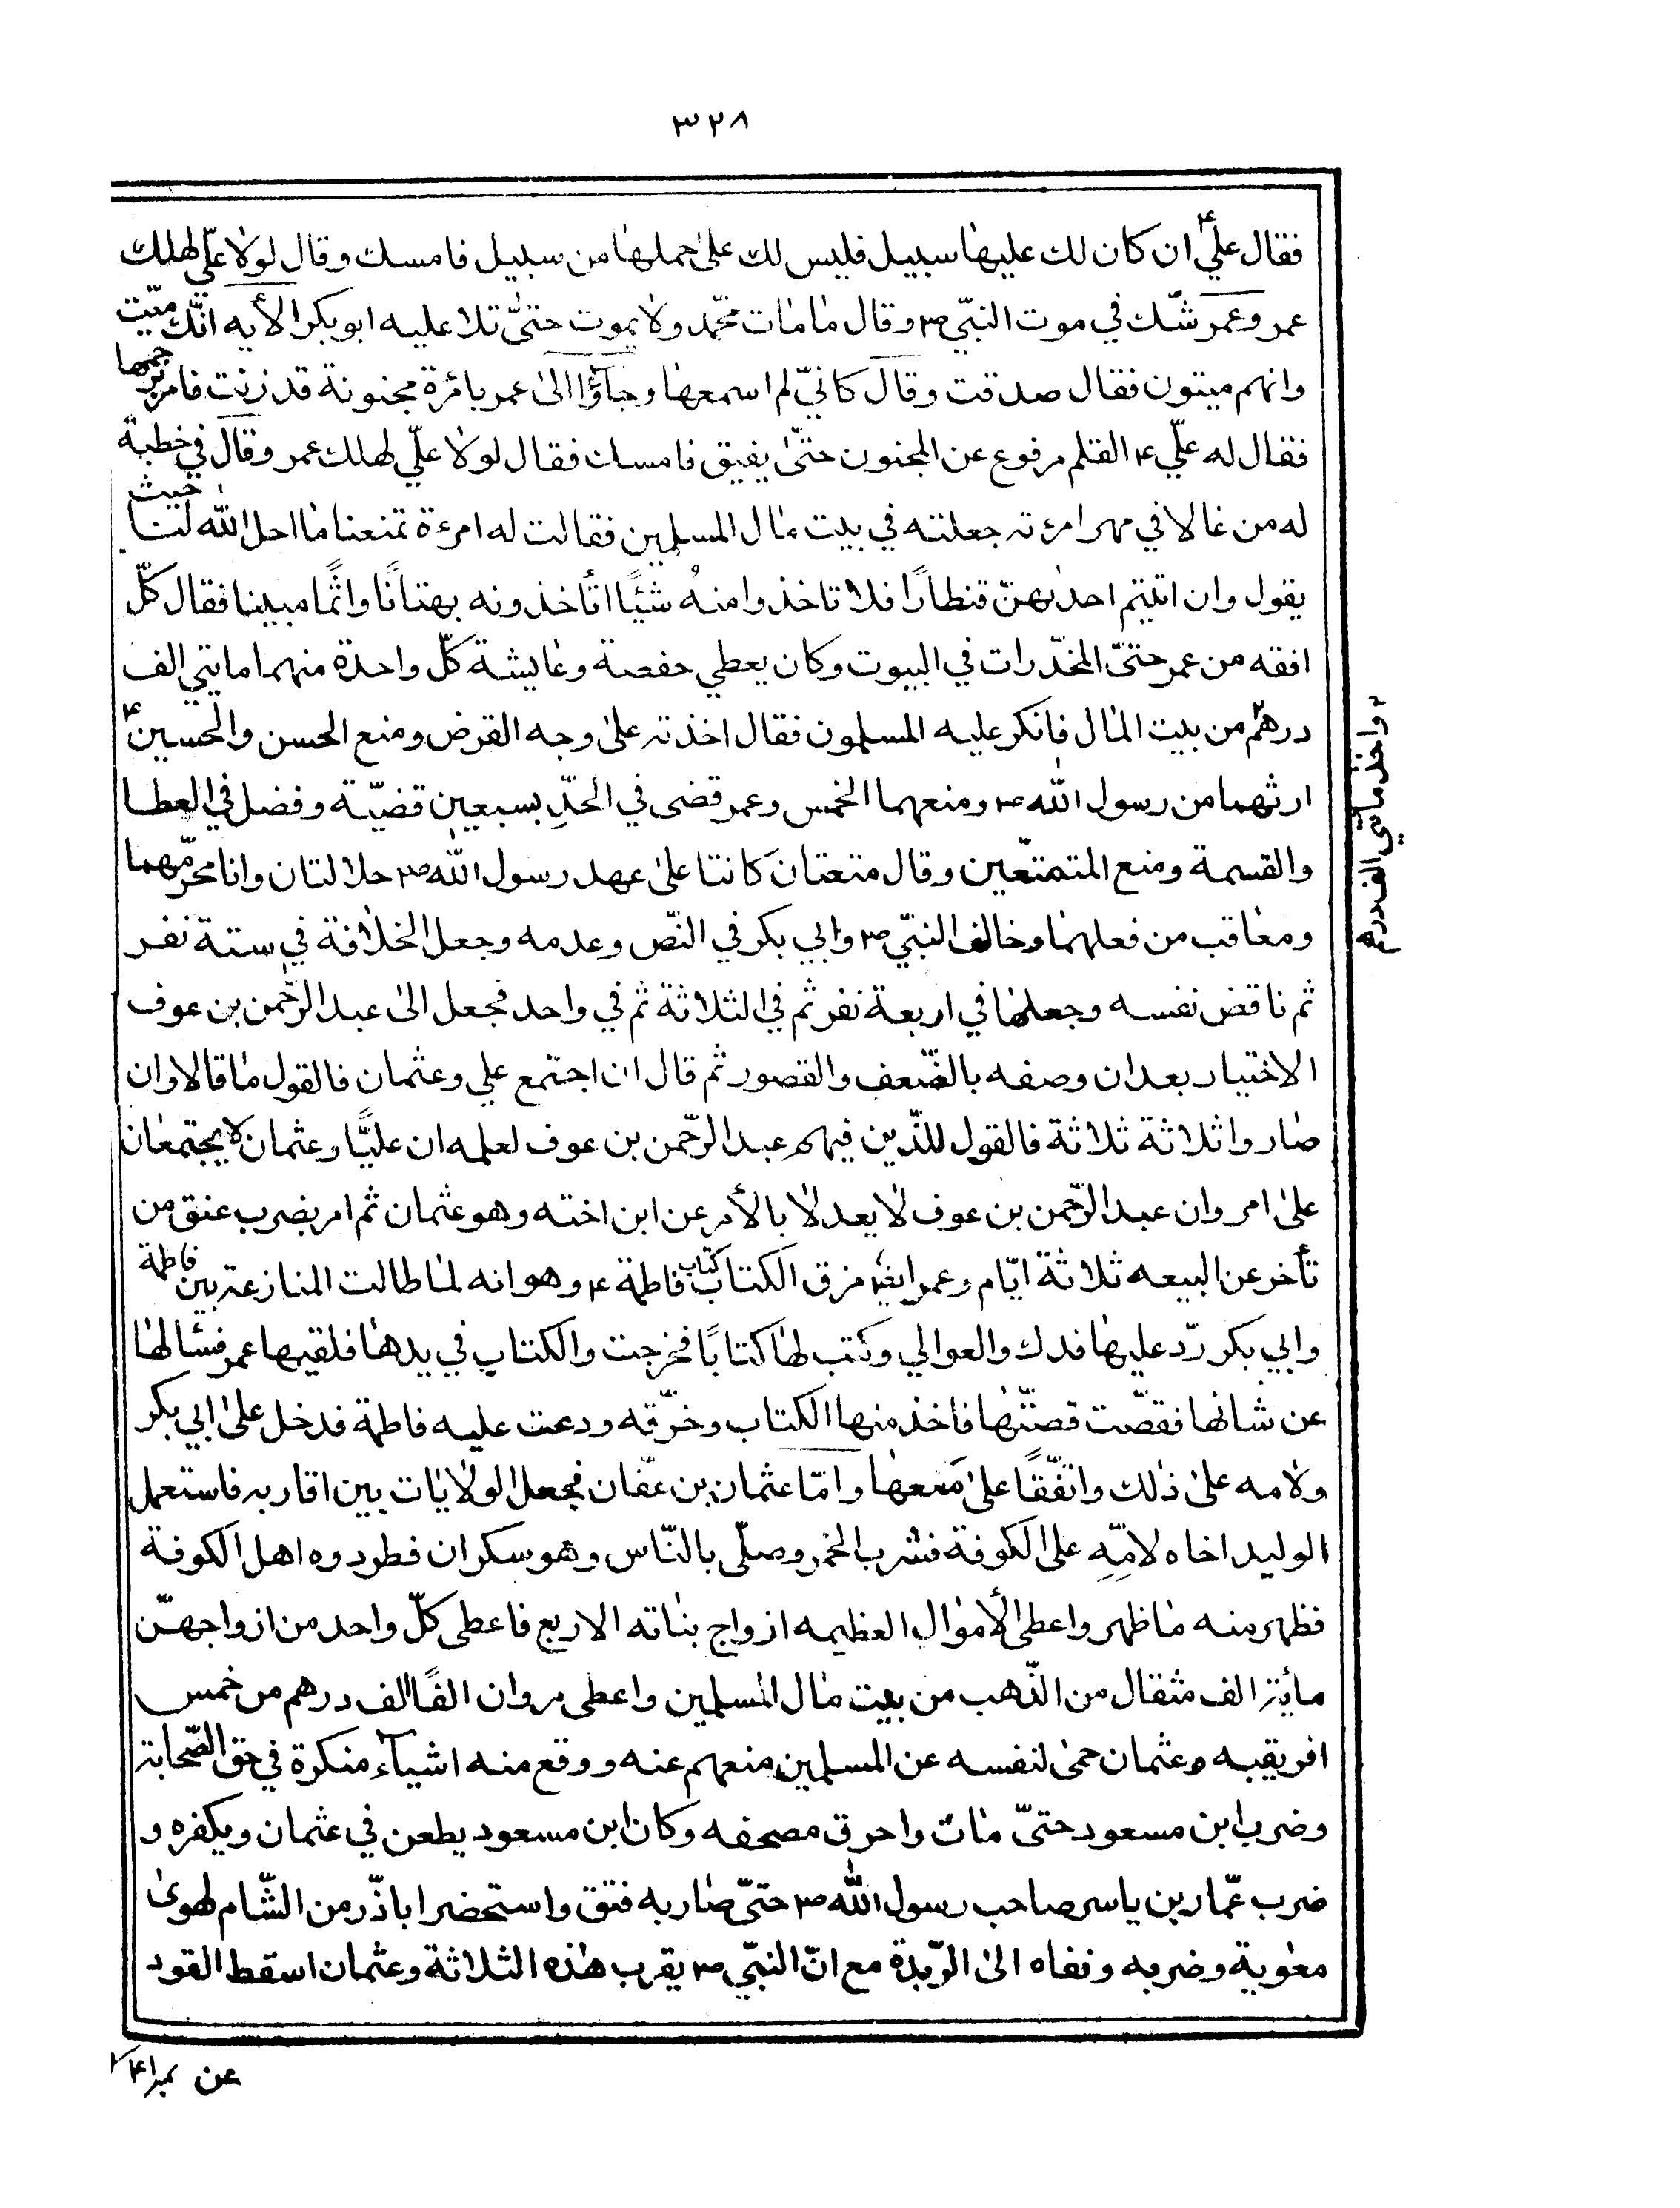 ٣٢٨
فقال عليّ ع ان كان لك عليها سبيل فليس لك على حملها من سبيل فامسك وقال لولا عليّ لهلك
عمر وعمر شكّ في موت النبيّ ص وقال ما مات محمّد ولا يموت حتىّ تلا عليه ابو بكر الأيه انّك ميّت
وانهم ميتون فقال صدقت وقال كانيّ لم اسمعها وجاؤا الى عمر بامرءة مجنونة قد زنت فامر برجمها
فقال له عليّ ع القلم مرفوع عن المجنون حتىّ يفيق فامسك فقال لولا عليّ لهلك عمر وقال في خطبة
له من غالا في مهر امرءته جعلته في بيت مال المسلمين فقالت له امرءة تمنعنا ما احل الله لنا حيث
يقول وان اتيتم احدٰىهنّ قنطارًا فلا تاخذوا منهُ شيئًا اتأخذونه بهتانًا واثمًا مبينا فقال كلّ
افقه من عمر حتىّ المخدّرات في البيوت وكان يعطي حفصة وعايشة كلّ واحدة منهما مايتي الف
درهم من بيت المال فانكر عليه المسلمون فقال اخذته على وجه القرض ومنع الحسن والحسين ع
ارثهما من رسول الله ص ومنعهما الخمس وعمر قضى في الحدّ بسبعين قضيّة وفضل في العطا
والقسمة ومنع المتمتّعين وقال متعتان كانتا على عهد رسول الله ص حلالتان وانا محرّمهما
ومعاقب من فعلهما وخالف النبيّ ص وابي بكر في النّص وعدمه وجعل الخلافة في ستة نفر
ثم ناقض نفسه وجعلها في اربعة نفر ثم في الثلاثة ثم في واحد فجعل الى عبد الرحّمن بن عوف
الاختيار بعد ان وصفه بالضّعف والقصور ثم قال ان اجتمع علي وعثمان فالقول ما قالا وان
صاروا ثلاثة ثلاثة فالقول للذّين فيهم عبد الرحّمن بن عوف لعلمه ان عليًّا وعثمان لا يجتمعان
على امر وان عبد الرحّمن بن عوف لا يعدل الا بالأمر عن ابن اخته وهو عثمان ثم امر بضرب عنق من
تأخر عن البيعه ثلاثة ايّام وعمر ايضا مزق الكتاب كتاب فاطمة ع وهو انه لما طالت المنازعة بين فاطمة
وابي بكر ردّ عليها فدك والعوالي وكتب لها كتابًا فخرجت والكتاب في يدها فلقيها عمر فسئالها
عن شانها فقصّت قصتّها فاخذ منها الكتاب وخرّقه ودعت عليه فاطمة فدخل على ابي بكر
ولامه على ذلك واتفّقا على منعها وامّا عثمان بن عفّان فجعل الولايات بين اقاربه فاستعمل
الوليد اخاه لامّه على الكوفة فشرب الخمر وصلّى بالنّاس وهو سكران فطردوه اهل الكوفة
فظهر منه ما ظهر واعطى الأموال العظيمه ازواج بناته الاربع فاعطى كلّ واحد من ازواجهنّ
مأية الف مثقال من الذّهب من بيت مال المسلمين واعطى مروان الفًا الف درهم من خمس
افريقيه وعثمان حمى لنفسه عن المسلمين منعهم عنه ووقع منه اشياء منكرة في حق الصّحابة
وضرب ابن مسعود حتىّ مات واحرق مصحفه وكان ابن مسعود يطعن في عثمان ويكفره و
ضرب عمّار بن ياسر صاحب رسول الله ص حتىّ صار به فتق واستحضر اباذّر من الشّام لهوى
معٰوية وضربه ونفاه الى الرّبذة مع انّ النبيّ ص يقرب هٰذه الثلاثة وعثمان اسقط القود
واخذ مأتي الف درهم
عن